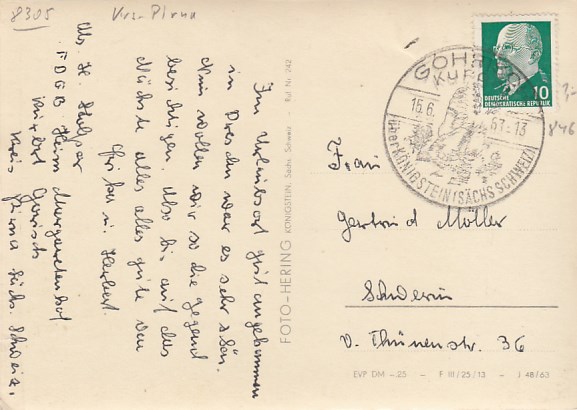 8305 Krs-Pirna
Im Urlaubsort gut angekommen
in Dresden war es sehr schön.
Nun wollen wir so die Gegend
besichtigen. Also bis auf das
Nächste alles alles gute von
Erika u. Herbert.
Abs. H.
FDGB Heim Margaretenhof
Gorisch
Kreis Pirna Sächs. Schweiz.
FOTO-HERING KÖNIGSTEIN, Sächs. Schweiz - Ruf Nr. 242
GOHRISCH
KURORT
16.6. 63-13
über KÖNIGSTEIN (SÄCHS SCHWEIZ)
10
DEUTSCHE
DEMOKRATISCHE REPUBLIK
846
Frau
Gertrud Möller
Schwerin
v. Thünenstr. 36
EVP DM -25 - F III/25/13 - J 48/63